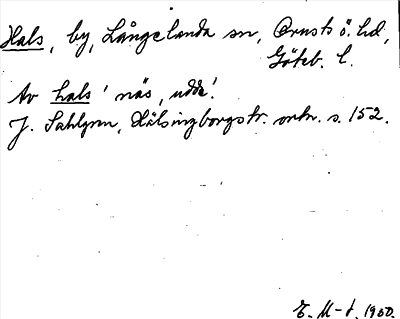 Hals, by, Långelanda sn, Orusts ö. hd,
Göteb. l.
Av hals 'näs, udde'.
J. Sahlgren, Hälsingborgstr. ortn. s. 152.
E. M-t. 1950.